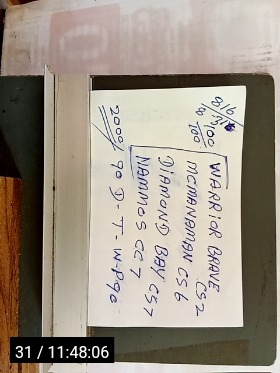 WARRIOR BRAVE
CS2
MCMANAMAN CS6
DIAMOND BAY CS7
NAMMOS CC7
2000/ 90 D-T-W-P90
31 / 11:48:06